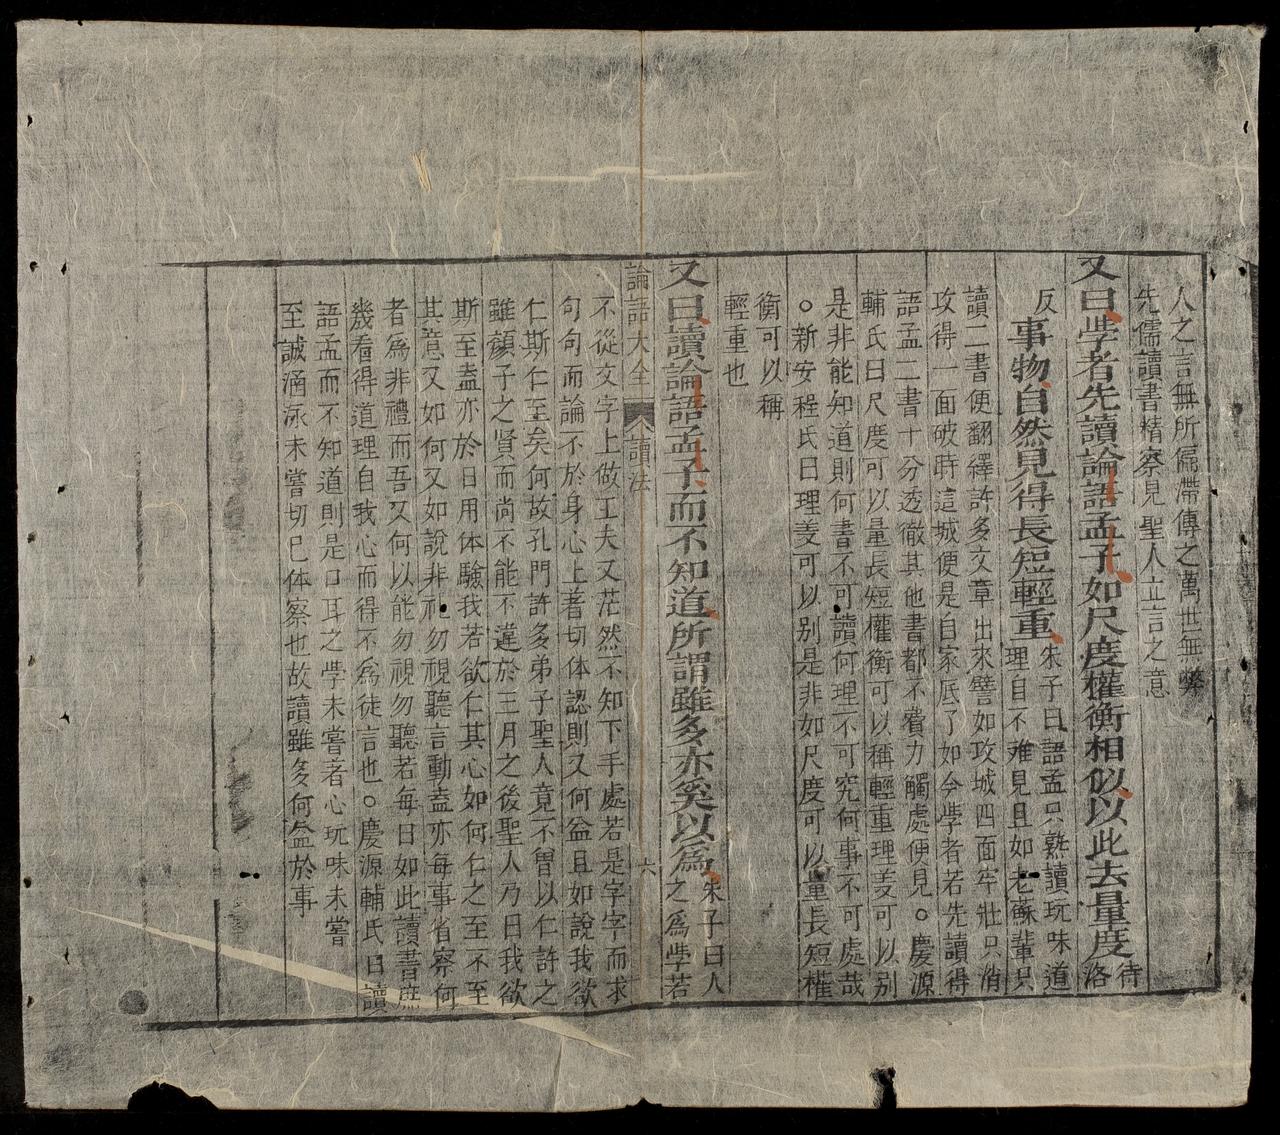 人之言無所偏滯傳之萬世無弊
先儒讀書精察見聖人立言之意
又曰學者先讀論語孟子如尺度權衡相似以此去量度待洛
反事物自然見得長短輕重朱子曰語孟只熟讀玩味道
理自不難見且如老蘇輩只
讀二書便翻繹許多文章出來譬如攻城四面牢壯只消
攻得一面破時這城便是自家底了如今學者若先讀得
語孟二書十分透徹其他書都不費力觸處便見○慶源
輔氏曰尺度可以量長短權衡可以稱輕重理義可以别
是非能知道則何書不可讀何理不可究何事不可處哉
○新安程氏曰理義可以别是非如尺度可以量長短權
衡可以稱
輕重也
又曰讀論語孟子而不知道所謂雖多亦奚以爲朱子曰人
之爲學若
論語大全 讀法 六
不從文字上做工夫又茫然不知下手處若是字字而求
句句而論不於身心上着切体認則又何益且如說我欲
仁斯仁至矣何故孔門許多弟子聖人竟不曾以仁許之
雖顔子之賢而尚不能不違於三月之後聖人乃曰我欲
斯至盍亦於日用体驗我若欲仁其心如何仁之至不至
其意又如何又如說非礼勿視聽言動盍亦每事省察何
者爲非禮而吾又何以能勿視勿聽若每日如此讀書庶
幾看得道理自我心而得不爲徒言也○慶源輔氏曰讀
語孟而不知道則是口耳之學未嘗着心玩味未嘗
至誠涵泳未嘗切已体察也故讀雖多何益於事